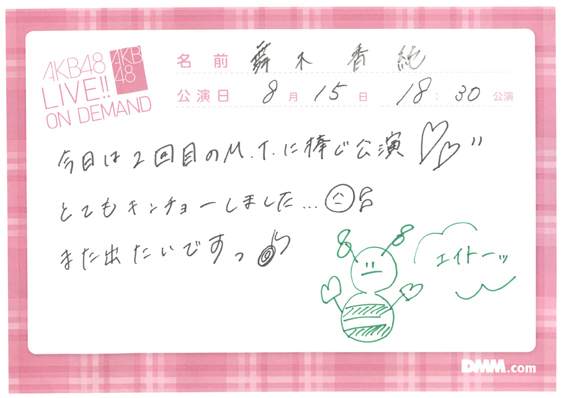 AKB48
LIVE!!
ON DEMAND
AKB
48
名前 舞木香純
公演日 8月15日 18:30公演
今日は2回目のM.T.に捧ぐ公演♡♡"
とてもキンチョーしました…
また出たいですっ
エイトーッ
DMM.com